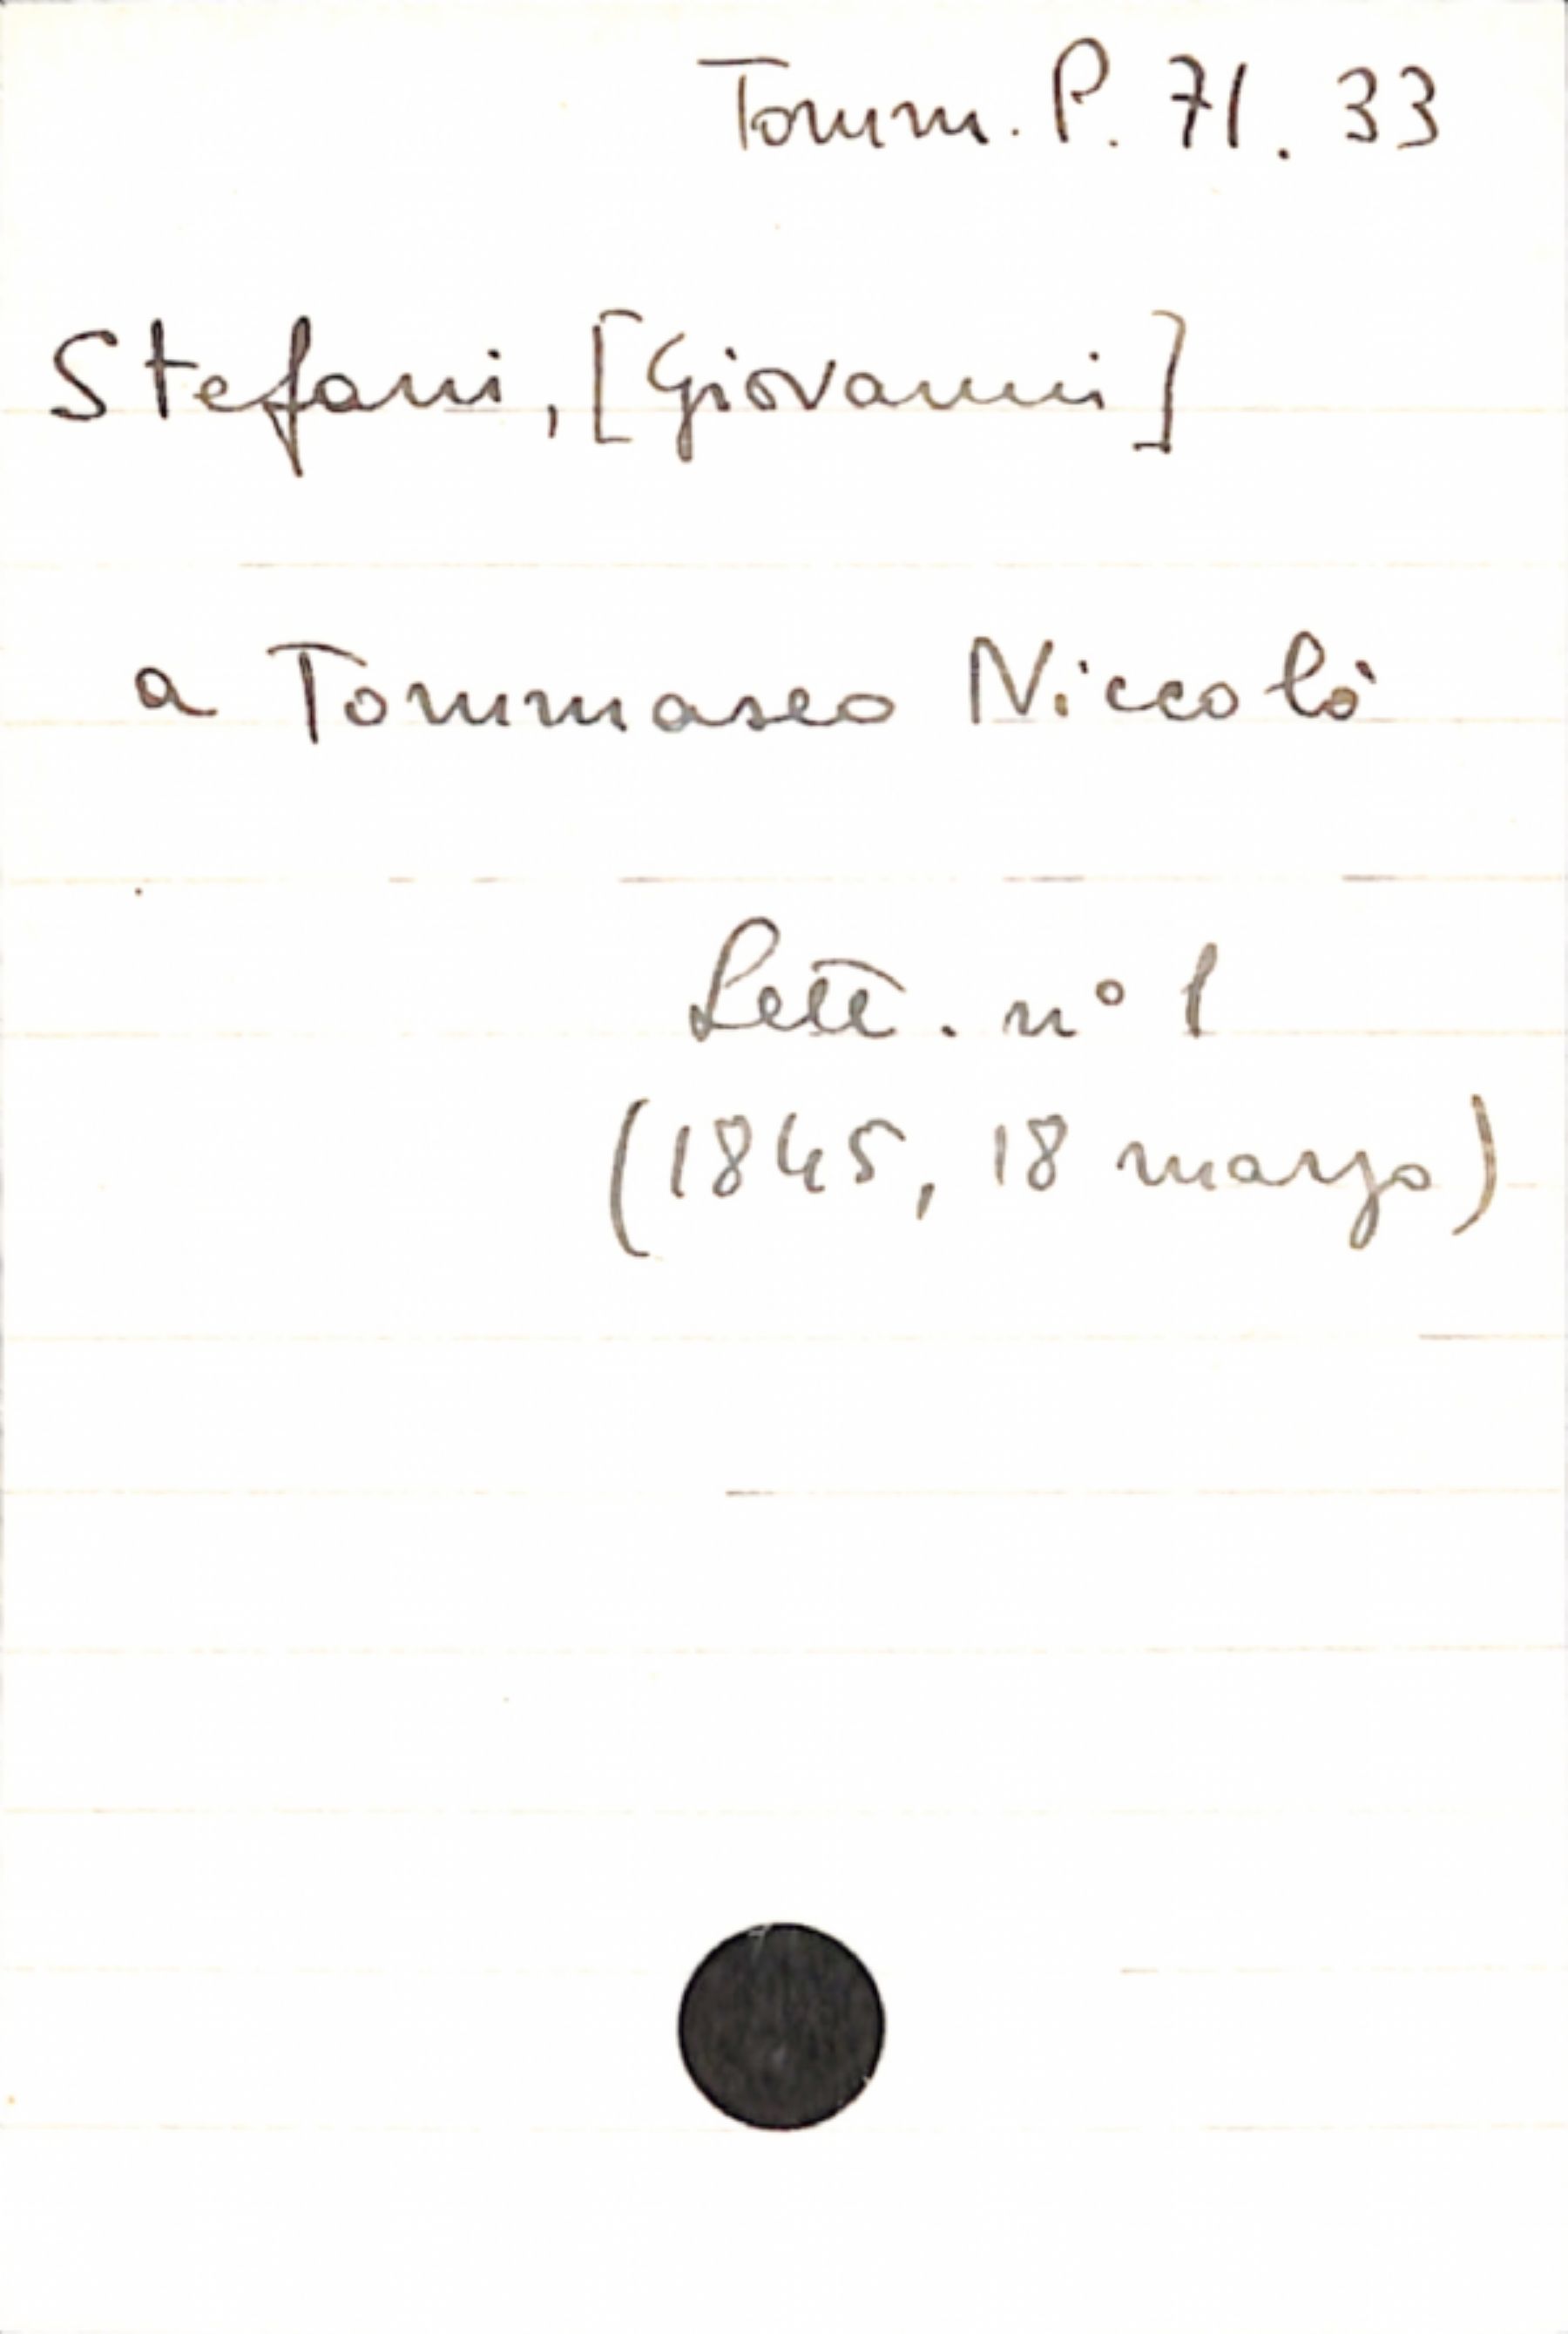 Tomm. P. 71. 33
Stefani, [Giovanni]
a Tommaseo Niccolò
Lett. n° 1
(1845, 18 marzo)